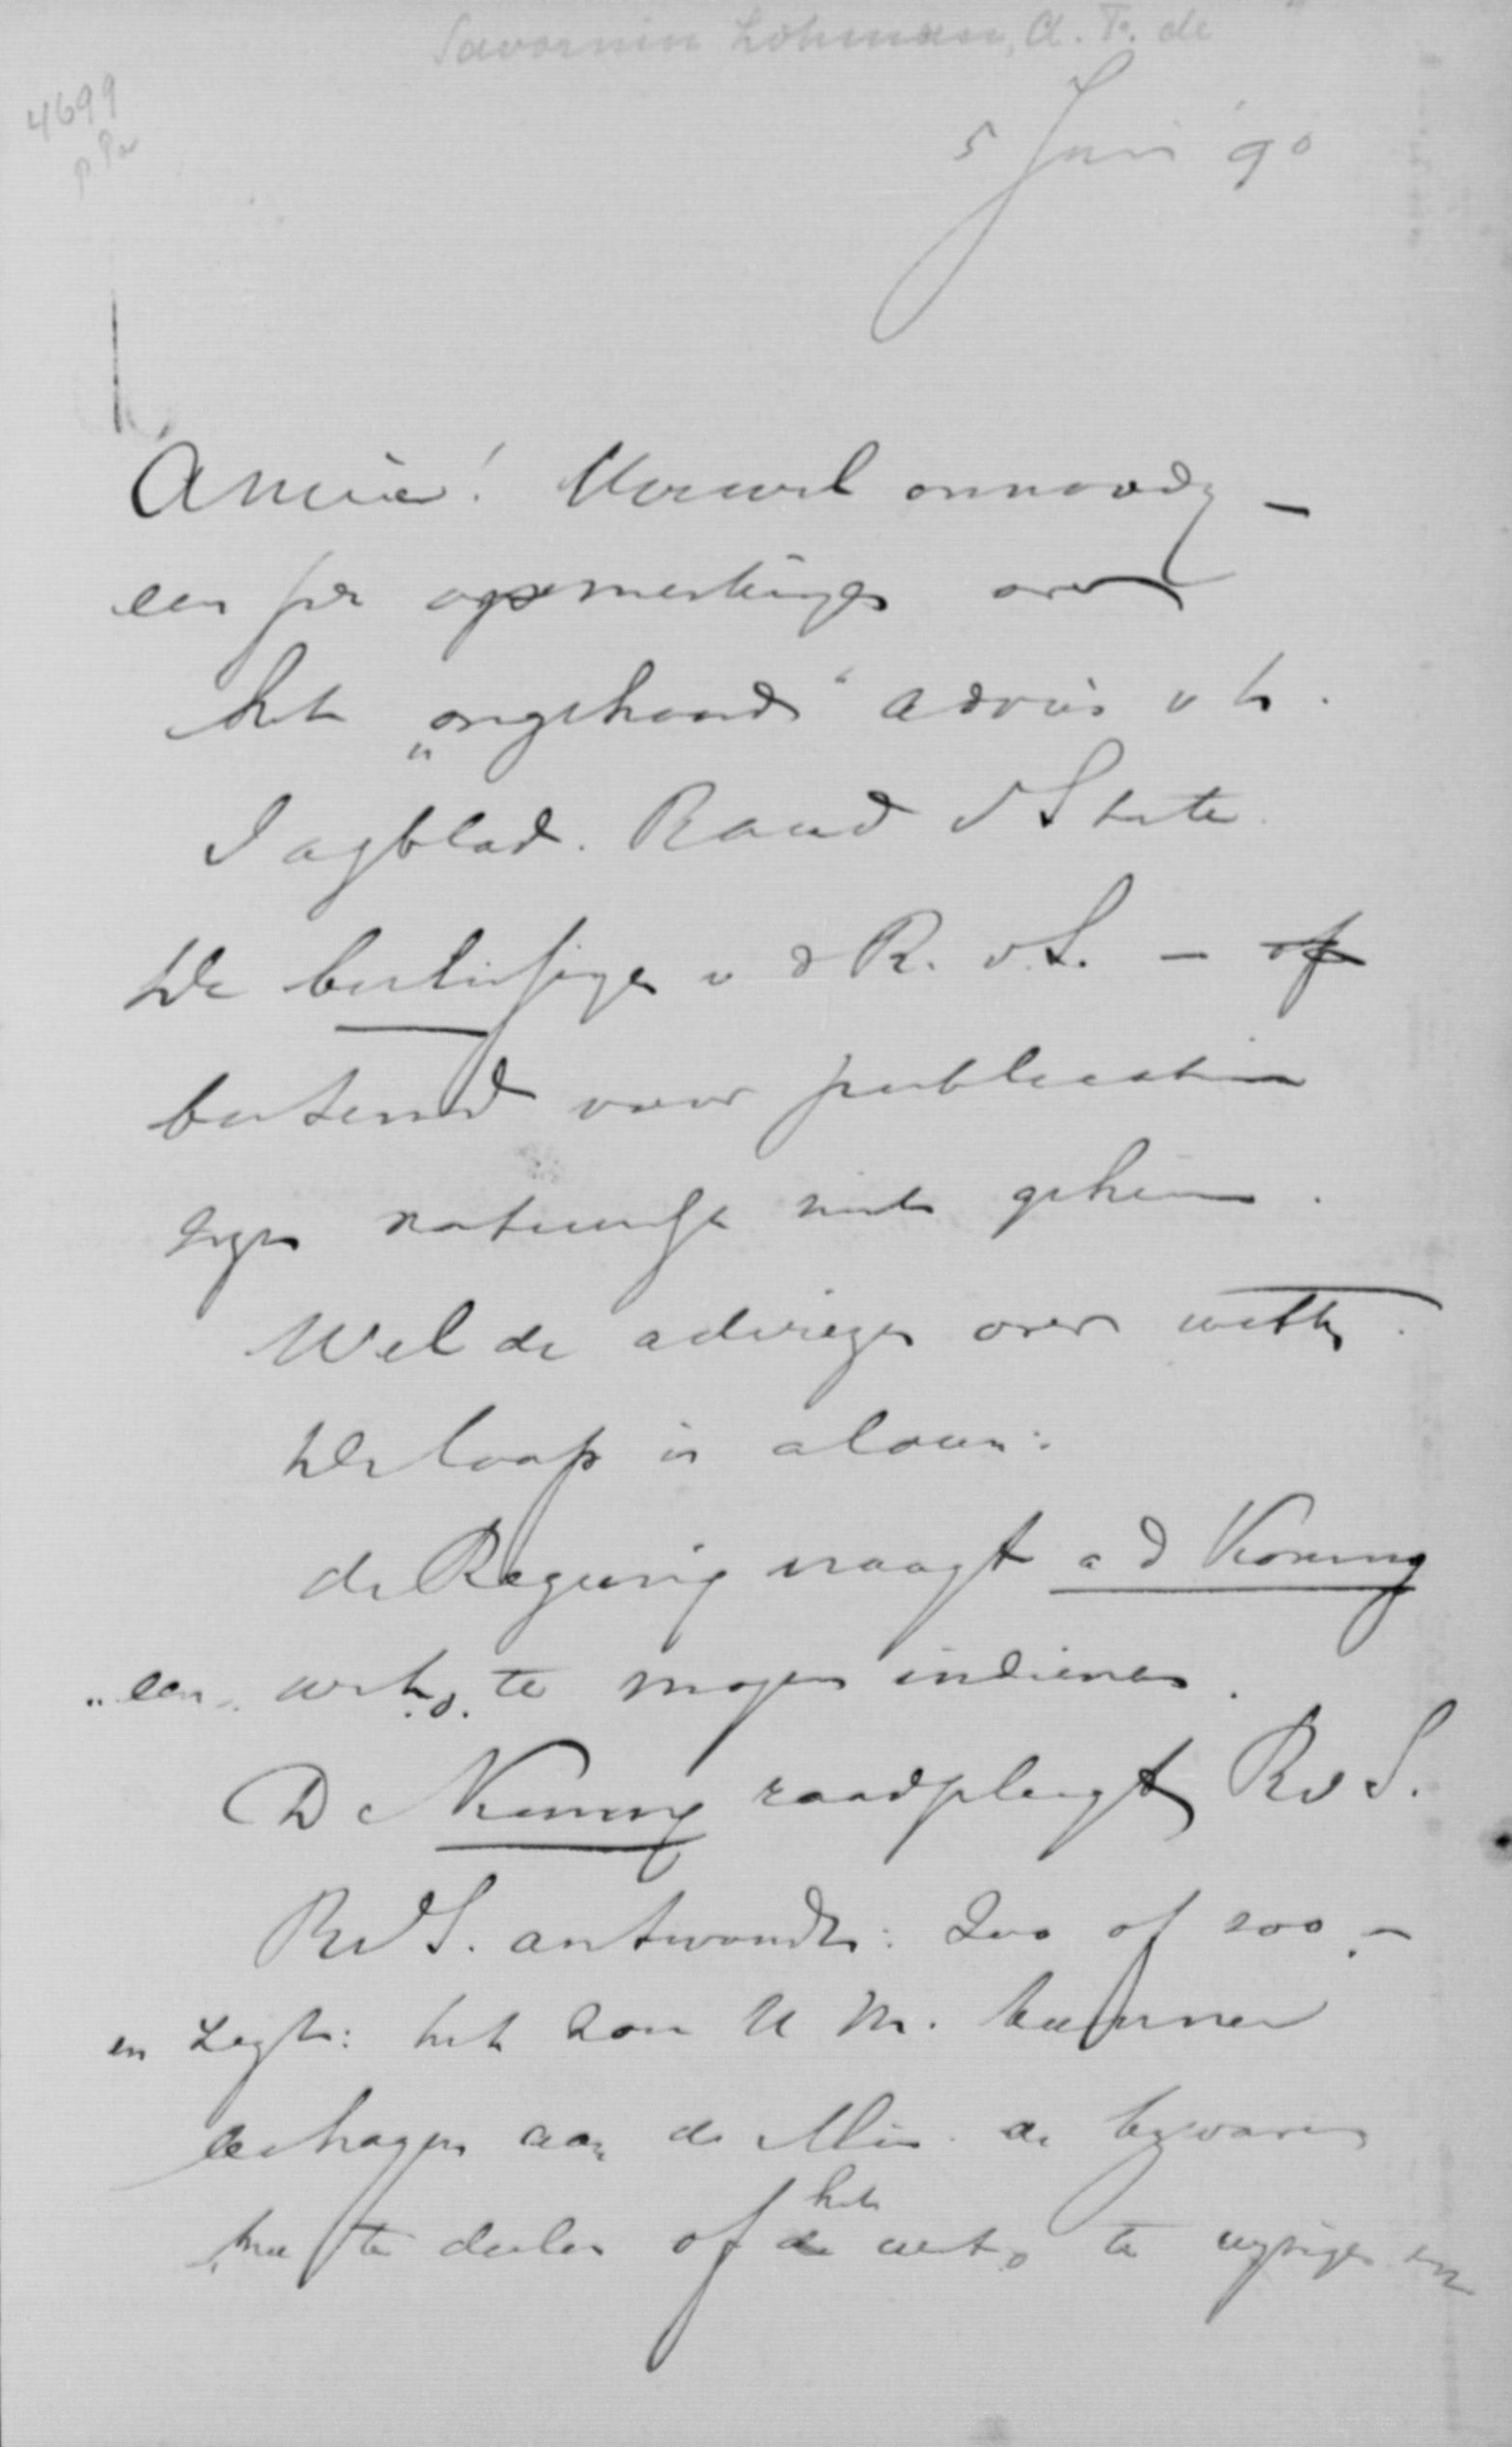 Savornin Lohman, A. F. de
4699
5 Juni '90
Amice! Hoewel onnoodig —
een paar opmerkingen over
het „ongehoord" advies v h.
Dagblad. Raad v State.
De beslissingen v d R. v. S. — of
bestemd voor publicatie
zijn natuurlijk niet geheim.
Wel de adviezen over wetten.
De loop is aldus:
de Regering vraagt a d Koning
een wets o. te mogen indienen.
De Koning raadpleegt R v S.
R v S. antwoordt: Zoo of zoo. —
en zegt: het zou U M. kunnen
behagen aan de Min. de bezwaren
mee te deelen of het de wets o te wijzigen en